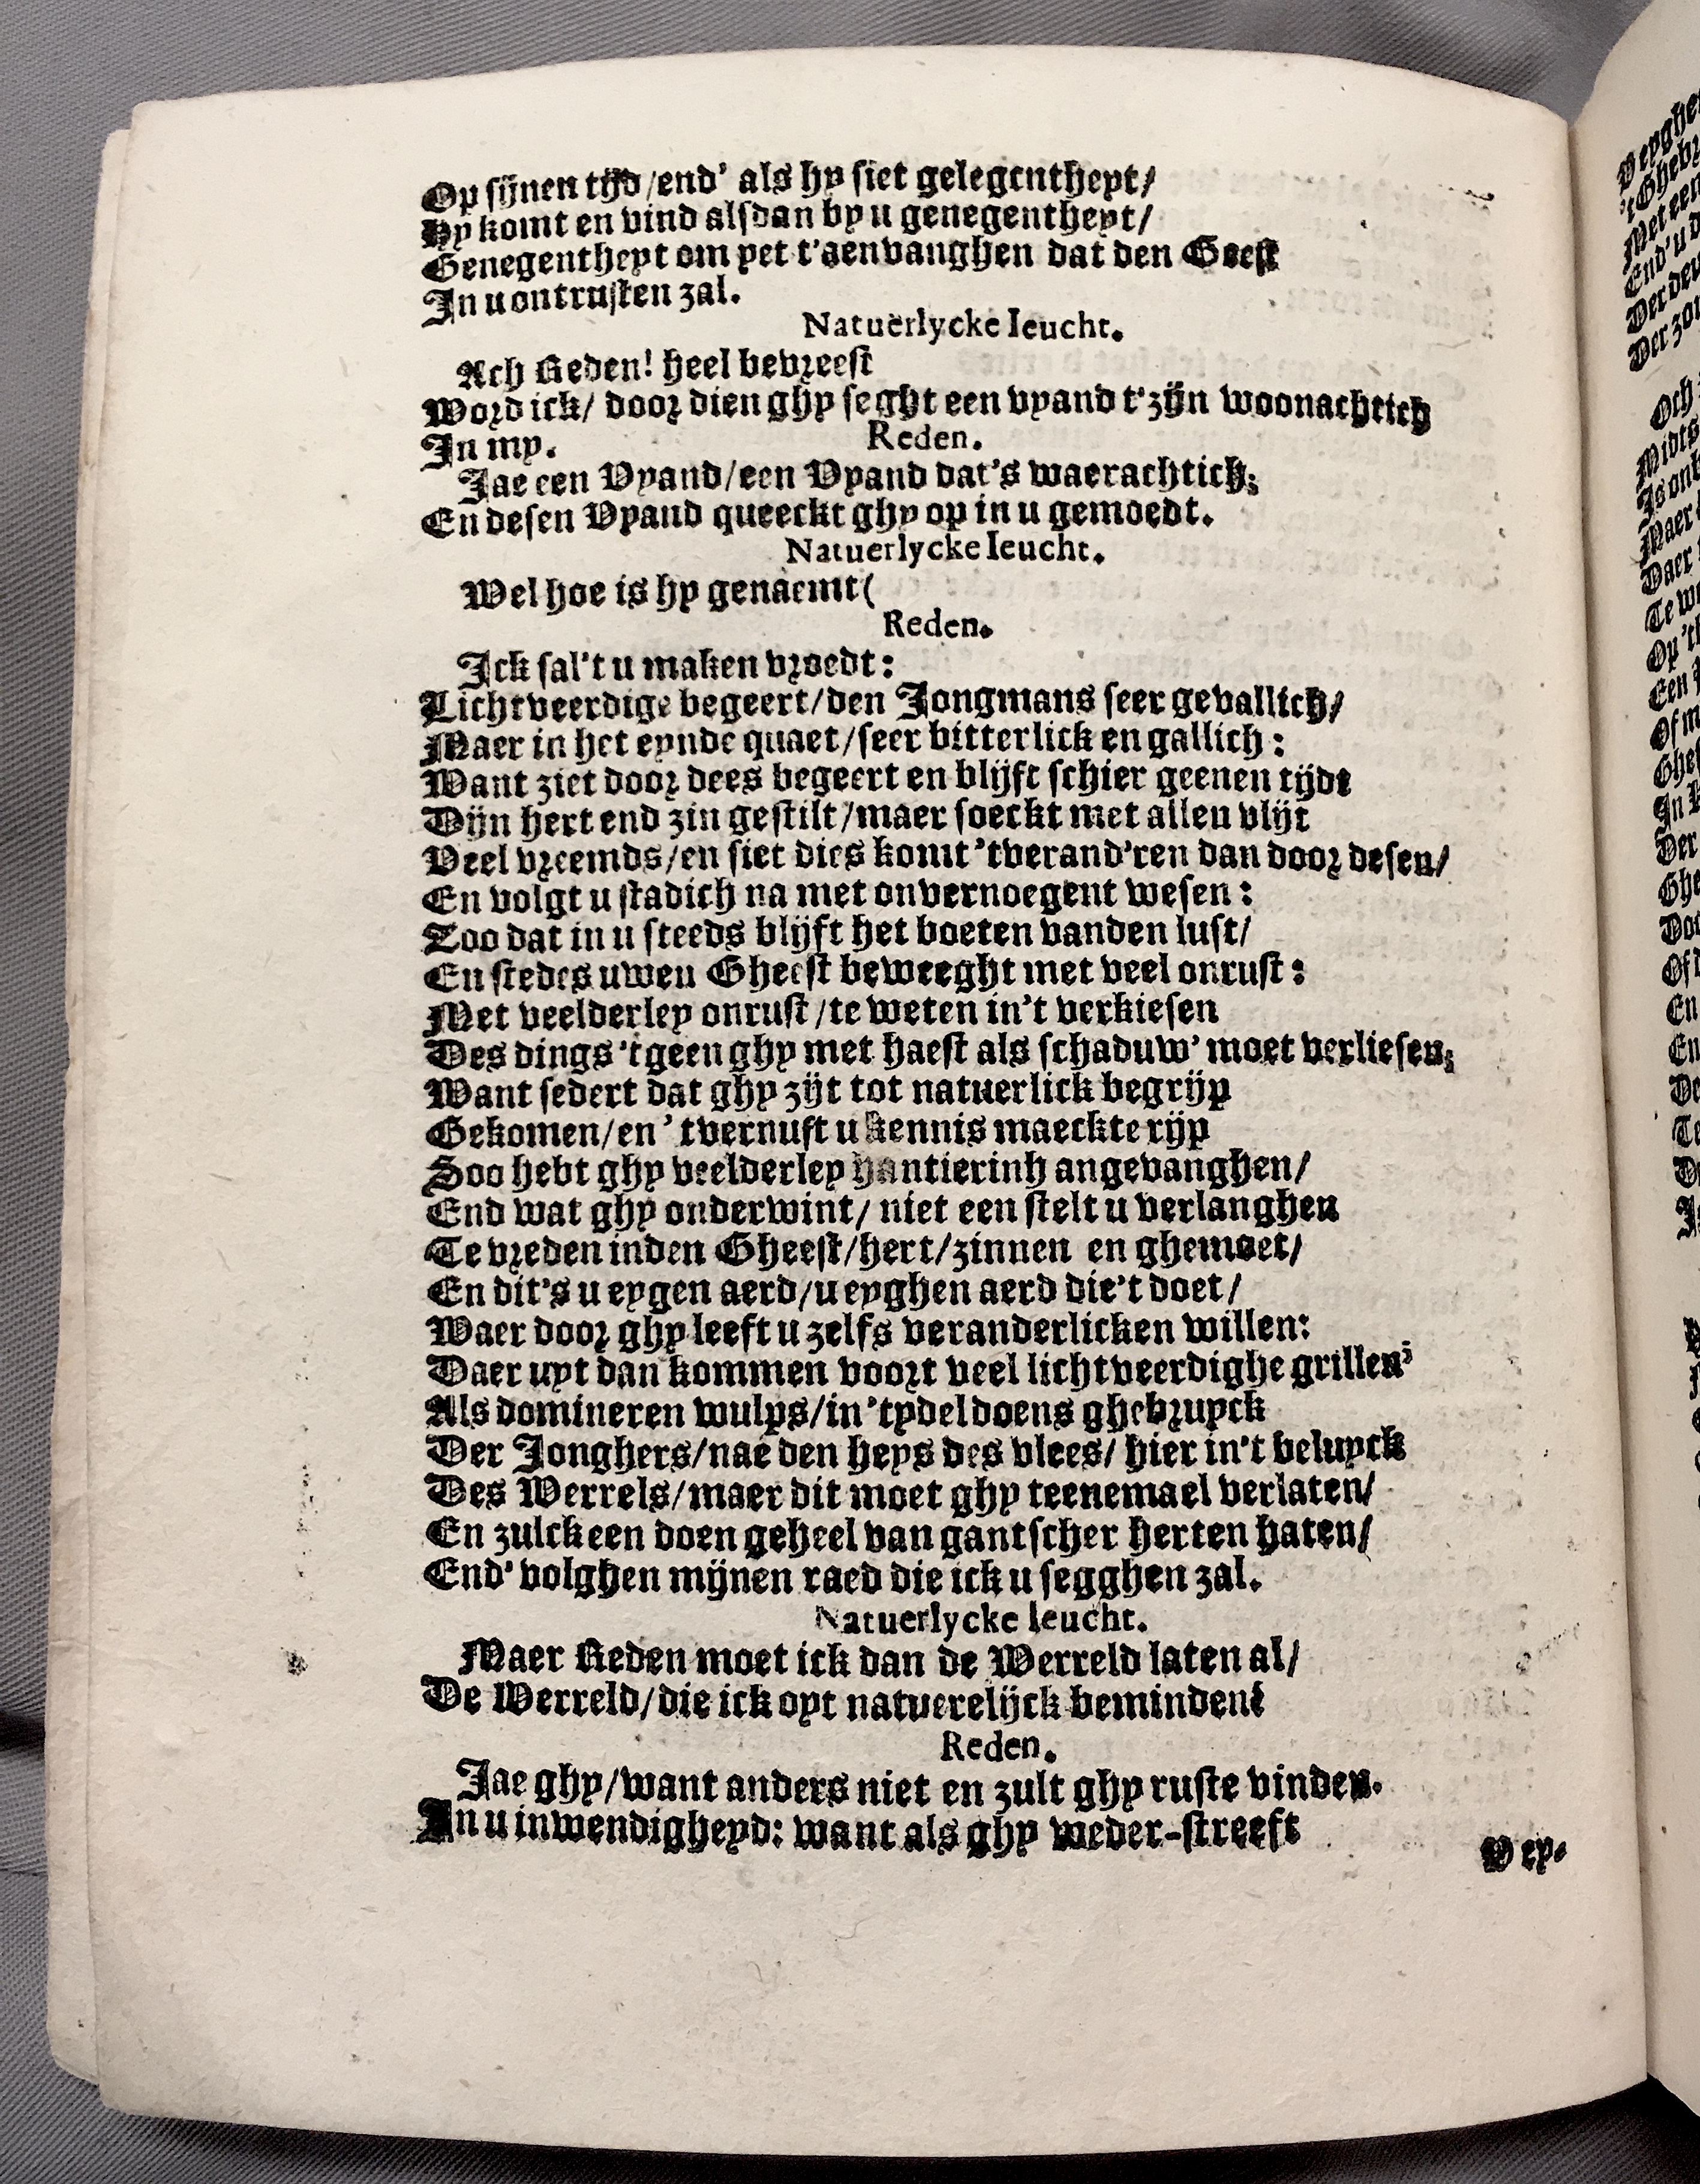 Op sijnen tijd/end' als hy siet gelegentheyt/
Hy komt en vind alsdan by u genegentheyt/
Genegentheyt om yet t'aenvanghen dat den Geest
In u ontrusten zal.
Natuerlycke Ieucht.
Ach Reden! heel bevreest
Word ick/ door dien ghy seght een vyand t'zijn woonachtich
In my.
Reden.
Jae een Vyand/een Vyand dat's waerachtich;
En desen Vyand queeckt ghy op in u gemoedt.
Natuerlycke Ieucht.
Wel hoe is hy genaemt(
Reden.
Ick sal't u maken vroedt:
Lichtveerdige begeert/den Jongmans seer gevallich/
Maer in het eynde quaet/seer bitterlick en gallich:
Want ziet door dees begeert en blijft schier geenen tijdt
Dijn hert end zin gestilt/maer soeckt met allen vlijt
Veel vreemds/en siet dies komt 'tverand'ren dan door desen/
En volgt u stadich na met onvernoegent wesen:
Zoo dat in u steeds blijft het boeten vanden lust/
En stedes uwen Gheest beweeght met veel onrust:
Met veelderley onrust/te weten in't verkiesen
Des dings 'tgeen ghy met haest als schaduw' moet verliesen;
Want sedert dat ghy zijt tot natuerlick begrijp
Gekomen/en 'tvernuft u kennis maeckte rijp
Soo hebt ghy veelderley hantierinh angevanghen/
End wat ghy onderwint/ niet een stelt u verlanghen
Te vreden inden Gheest/hert/zinnen en ghemoet/
En dit's u eygen aerd/u eyghen aerd die't doet/
Waer door ghy leeft u zelfs veranderlicken willen:
Daer uyt dan kommen voort veel lichtveerdighe grillen;
Als domineren wulps/in 'tydel doens ghebruyck
Der Jonghers/nae den heys des vlees/ hier in't beluyck
Des Werrels/maer dit moet ghy teenemael verlaten/
En zulck een doen geheel van gantscher herten haten/
End' volghen mijnen raed die ick u segghen zal.
Natuerlycke Ieucht.
Maer Reden moet ick dan de Werreld laten al/
De Werreld/die ick oyt natuerelijck beminden?
Reden.
Jae ghy/want anders niet en zult ghy ruste vinden.
In u inwendigheyd: want als ghy weder-streeft
Wey-